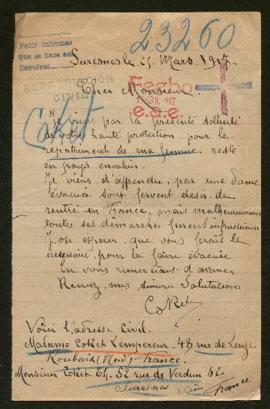 23260
Pedir informes
Que se hace sin
Devolver
Suresnes le 25 Mars 1917
Fecho
1917
e.a.e.
Cher Monsieur
CIVIL
Je viens par la présente
votre haute protection pour le
repatriment de ma femme resté
en pays envahis.
Je viens d'apprendre, par une Dame
évacué sont fervent desir de
rentré en France, mais malheureusement
toutes ses demarches furent infructueuse
j'ose esperer que vous ferais le
nécessaire pour la faire évacuée
En vous remerciant d'avance
Recevez, mes sincères Salutations
Coket
Voici l'adresse Civil.
Madame Coket Lempereur. 48 rue de Leuze
Roubaix (Nord) France.
Monsieur Coket 64. 52 rue de Verdun
Suresnes Seine France